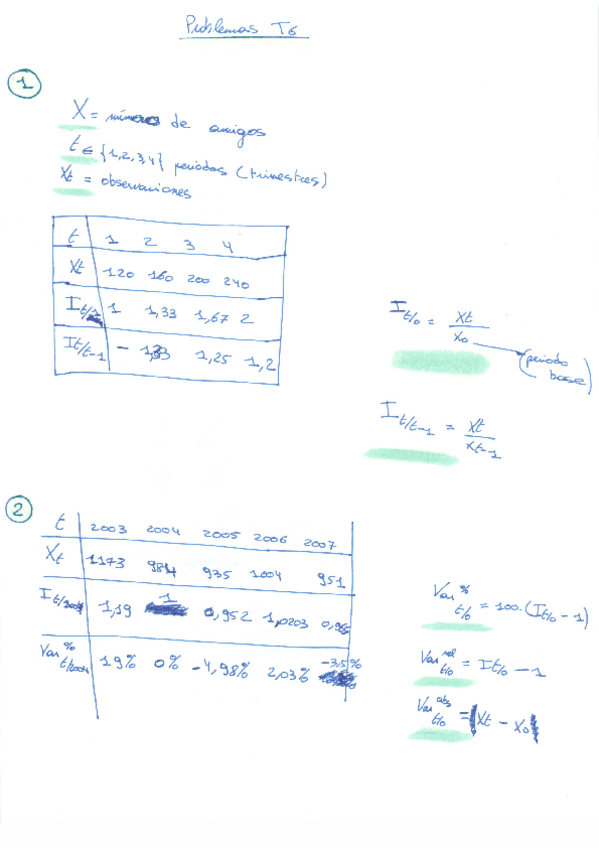 Problemas T6
1
X = número de amigos
t ∈ {1,2,3,4} periodos (trimestres)
Xt = observaciones
t 1 2 3 4
Xt 120 160 200 240
It/1 1 1,33 1,67 2
It/t-1 - 1,33 1,25 1,2
It/0 = Xt / X0 (periodo base)
It/t-1 = Xt / Xt-1
2
t 2003 2004 2005 2006 2007
Xt 1173 984 935 1004 951
It/2004 1,19 1 0,952 1,0203 0,965
Var % t/2004 19% 0% -4,98% 2,03% -3,5%
Var % t/0 = 100·(It/0 - 1)
Var rel t/0 = It/0 - 1
Var abs t/0 = |Xt - X0|